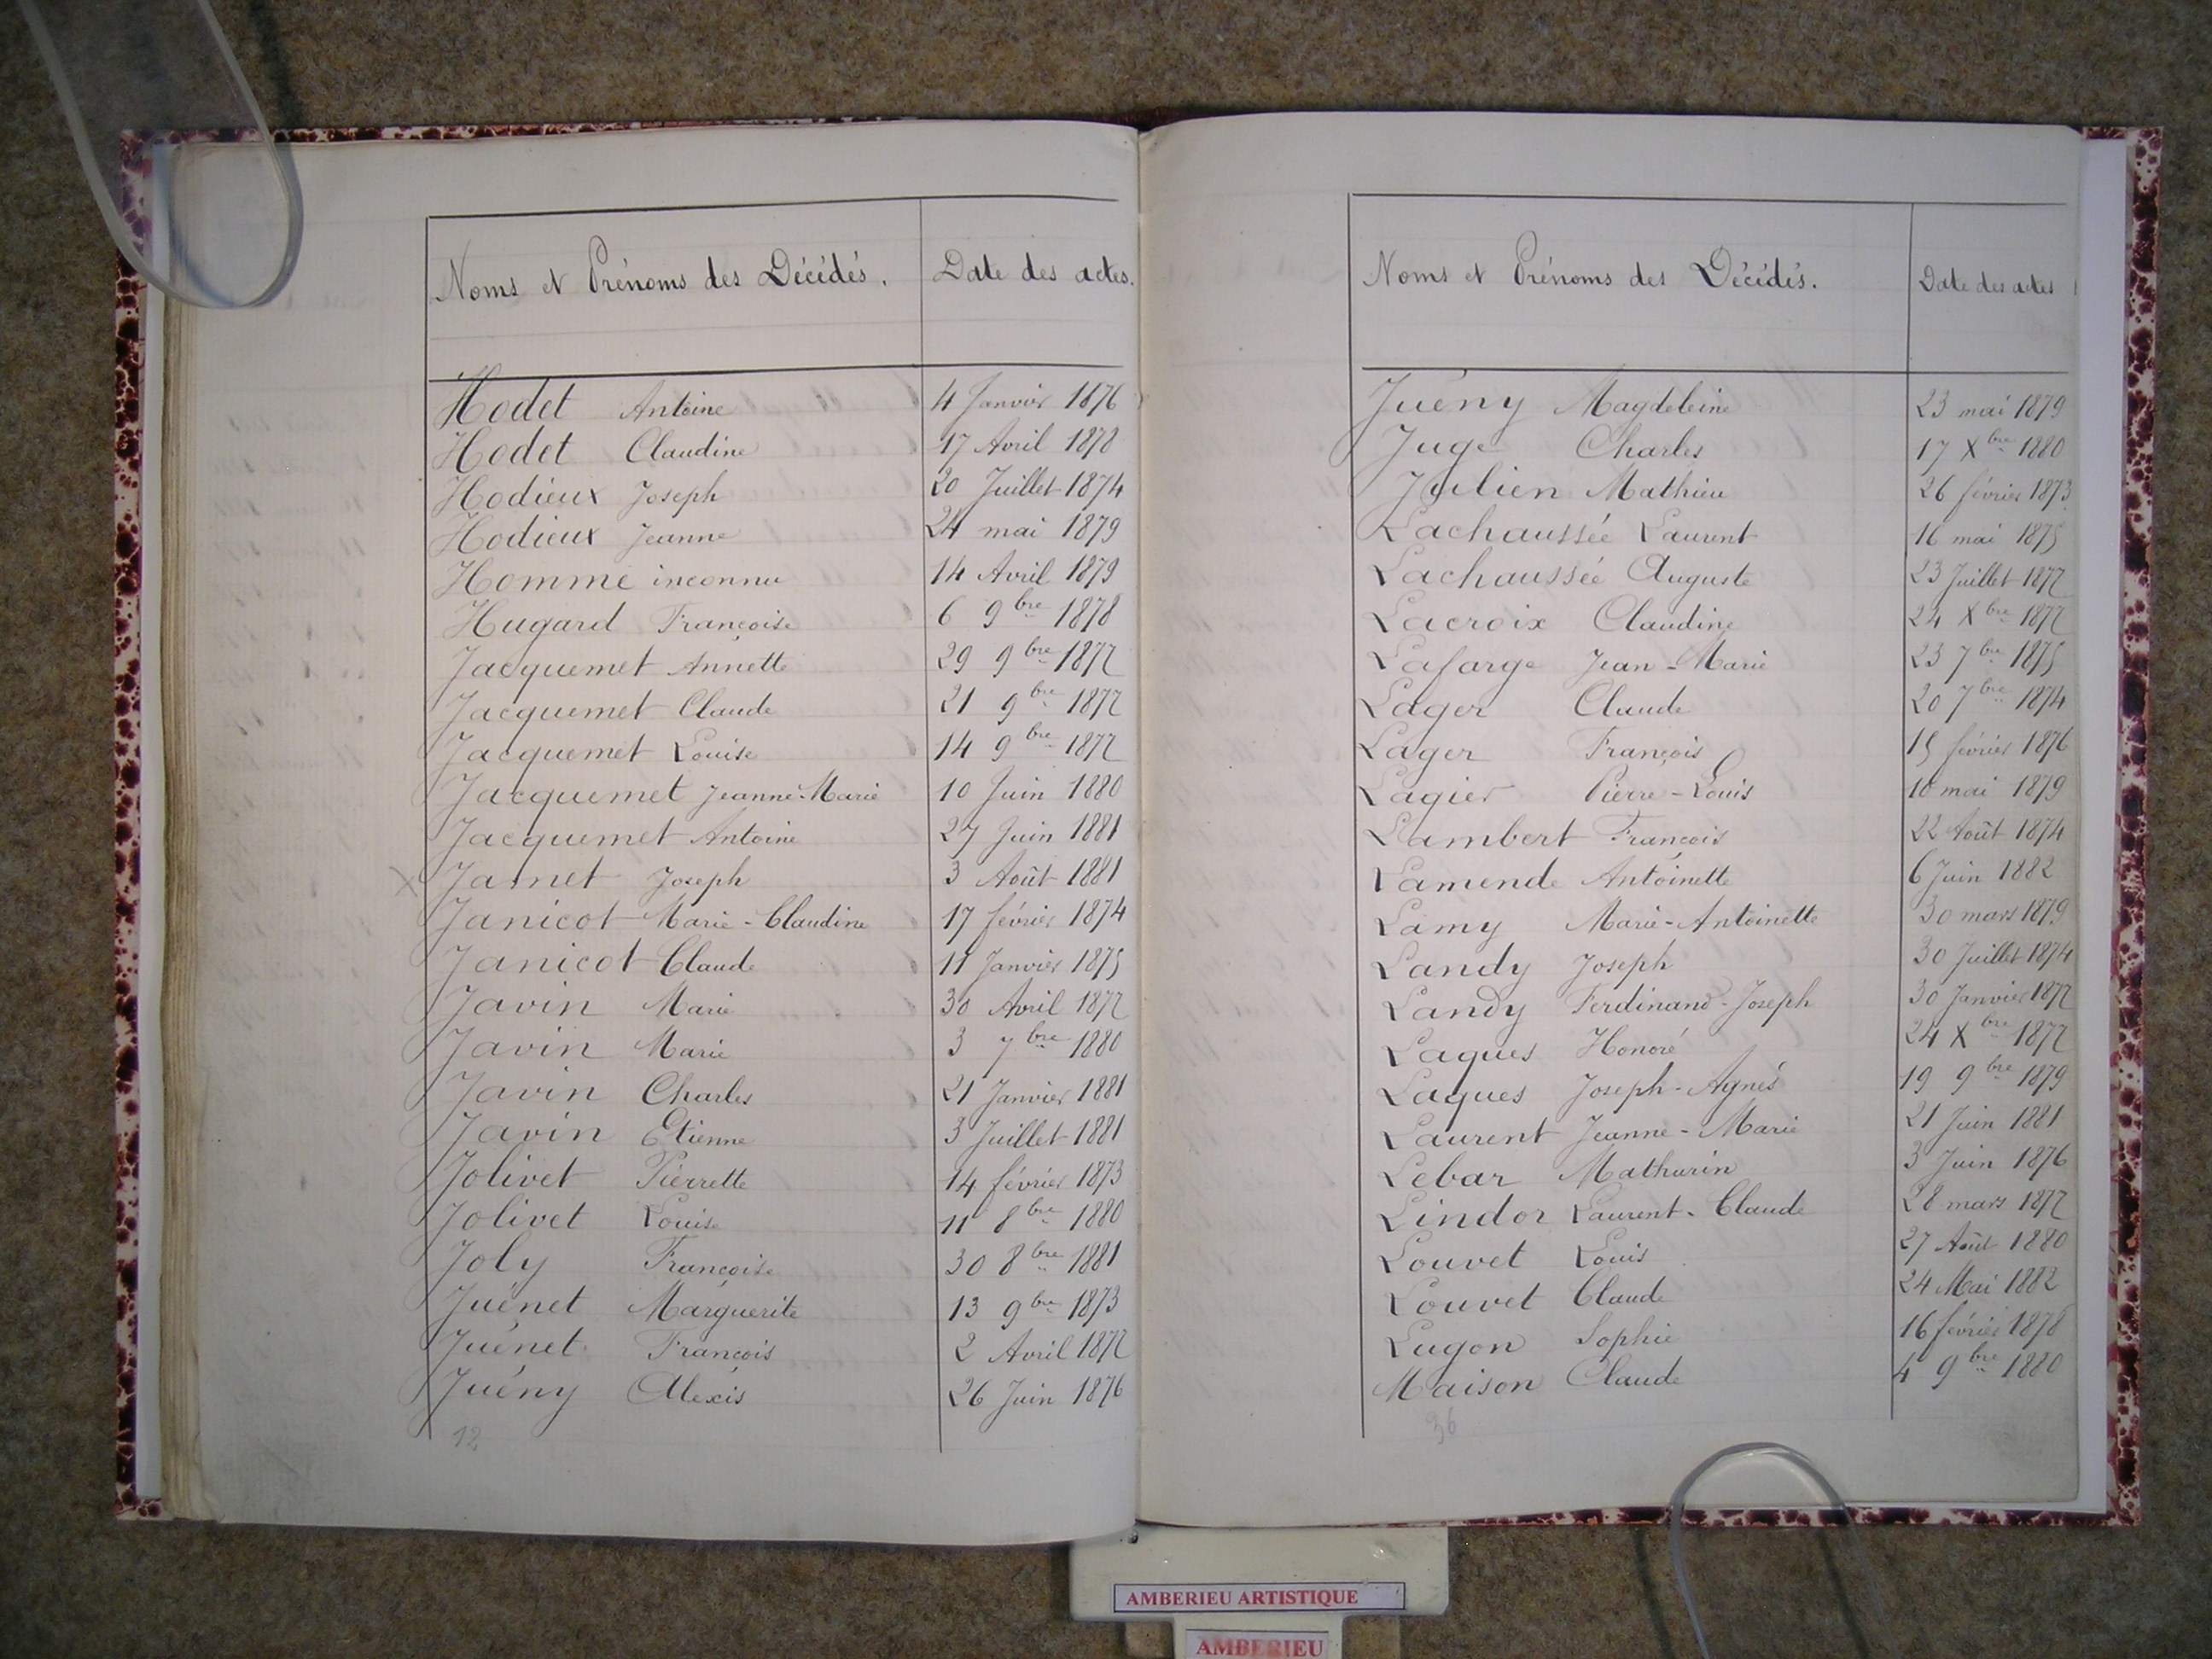 Noms et Prénoms des Décédés. Date des actes.
Hodet Antoine 4 Janvier 1876
Hodet Claudine 17 Avril 1878
Hodieux Joseph 20 Juillet 1874
Hodieux Jeanne 24 mai 1879
Homme inconnu 14 Avril 1879
Hugard Françoise 6 9bre 1878
Jacquemet Annette 29 9bre 1877
Jacquemet Claude 21 9bre 1877
Jacquemet Louise 14 9bre 1877
Jacquemet Jeanne-Marie 10 Juin 1880
Jacquemet Antoine 27 Juin 1881
x Jamet Joseph 3 Août 1881
Janicot Marie-Claudine 17 février 1874
Janicot Claude 11 Janvier 1875
Javin Marie 30 Avril 1877
Javin Marie 3 7bre 1880
Javin Charles 21 Janvier 1881
Javin Etienne 3 Juillet 1881
Jolivet Pierrette 14 février 1873
Jolivet Louise 11 8bre 1880
Joly Françoise 30 8bre 1881
Juénet Marguerite 13 9bre 1873
Juénet François 2 Avril 1877
Juény Alexis 26 Juin 1876
12
Noms et Prénoms des Décédés. Date des actes
Juény Magdeleine 23 mai 1879
Juge Charles 17 Xbre 1880
Julien Mathieu 26 février 1873
Lachaussée Laurent 16 mai 1875
Lachaussée Auguste 23 Juillet 1877
Lacroix Claudine 24 Xbre 1877
Lafarge Jean-Marie 23 7bre 1875
Lager Claude 20 7bre 1874
Lager François 15 février 1876
Lagier Pierre-Louis 10 mai 1879
Lambert François 22 Août 1874
Lamende Antoinette 6 Juin 1882
Lamy Marie-Antoinette 30 mars 1879
Landy Joseph 30 Juillet 1874
Landy Ferdinand-Joseph 30 Janvier 1877
Laques Honoré 24 Xbre 1877
Laques Joseph-Agnés 19 9bre 1879
Laurent Jeanne-Marie 21 Juin 1881
Lebar Mathurin 3 Juin 1876
Lindor Laurent-Claude 28 mars 1877
Louvet Louis 27 Août 1880
Louvet Claude 24 Mai 1882
Lugon Sophie 16 février 1878
Maison Claude 4 9bre 1880
36
AMBERIEU ARTISTIQUE
AMBERIEU